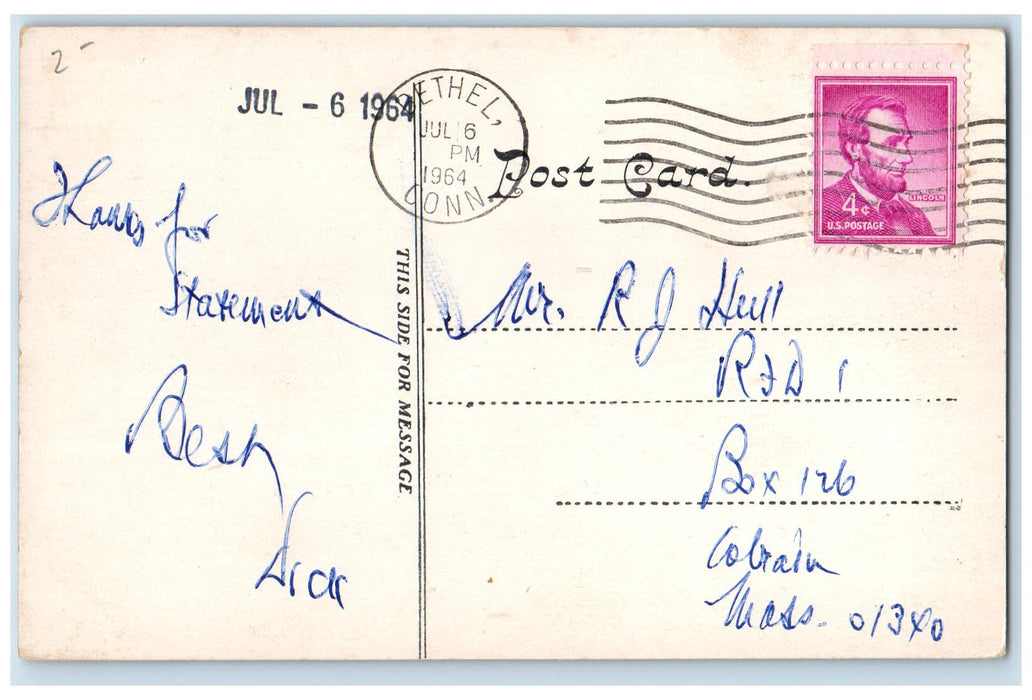 2-
JUL - 6 1964
BETHEL,
JUL 6
PM
1964
CONN
Post Card.
LINCOLN
4¢
U.S. POSTAGE
Thanks for
Statement
Best,
Dick
THIS SIDE FOR MESSAGE
Mr. R J Hull
RFD 1
Box 126
Colrain
Mass. 01340